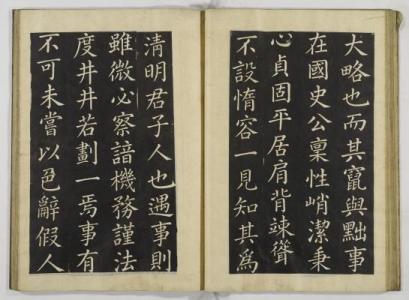 大略也而其竄與黜事
在國史公稟性峭潔秉
心貞固平居肩背竦聳
不設惰容一見知其為
淸明君子人也遇事則
雖微必察諳機務謹法
度井井若劃一焉事有
不可未嘗以色辭假人